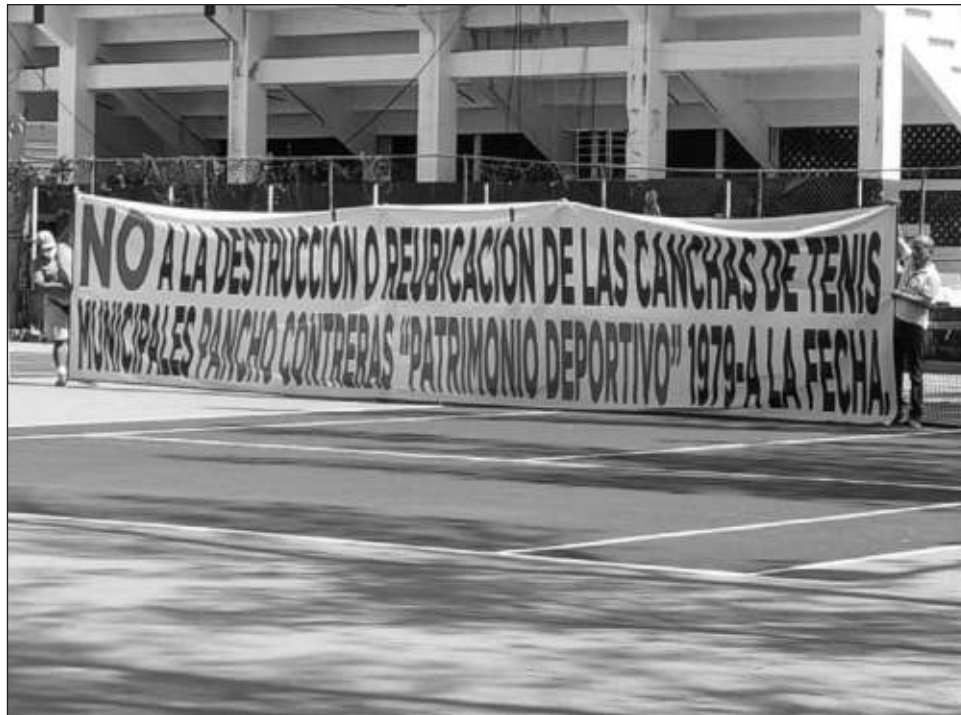 NO A LA DESTRUCCIÓN O REUBICACIÓN DE LAS CANCHAS DE TENIS
MUNICIPALES PANCHO CONTRERAS "PATRIMONIO DEPORTIVO" 1979-A LA FECHA.